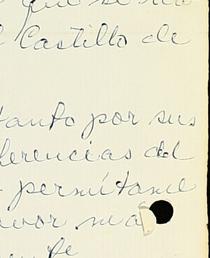 que se
Castillo de
tanto por sus
ferencias del
permítame
avor